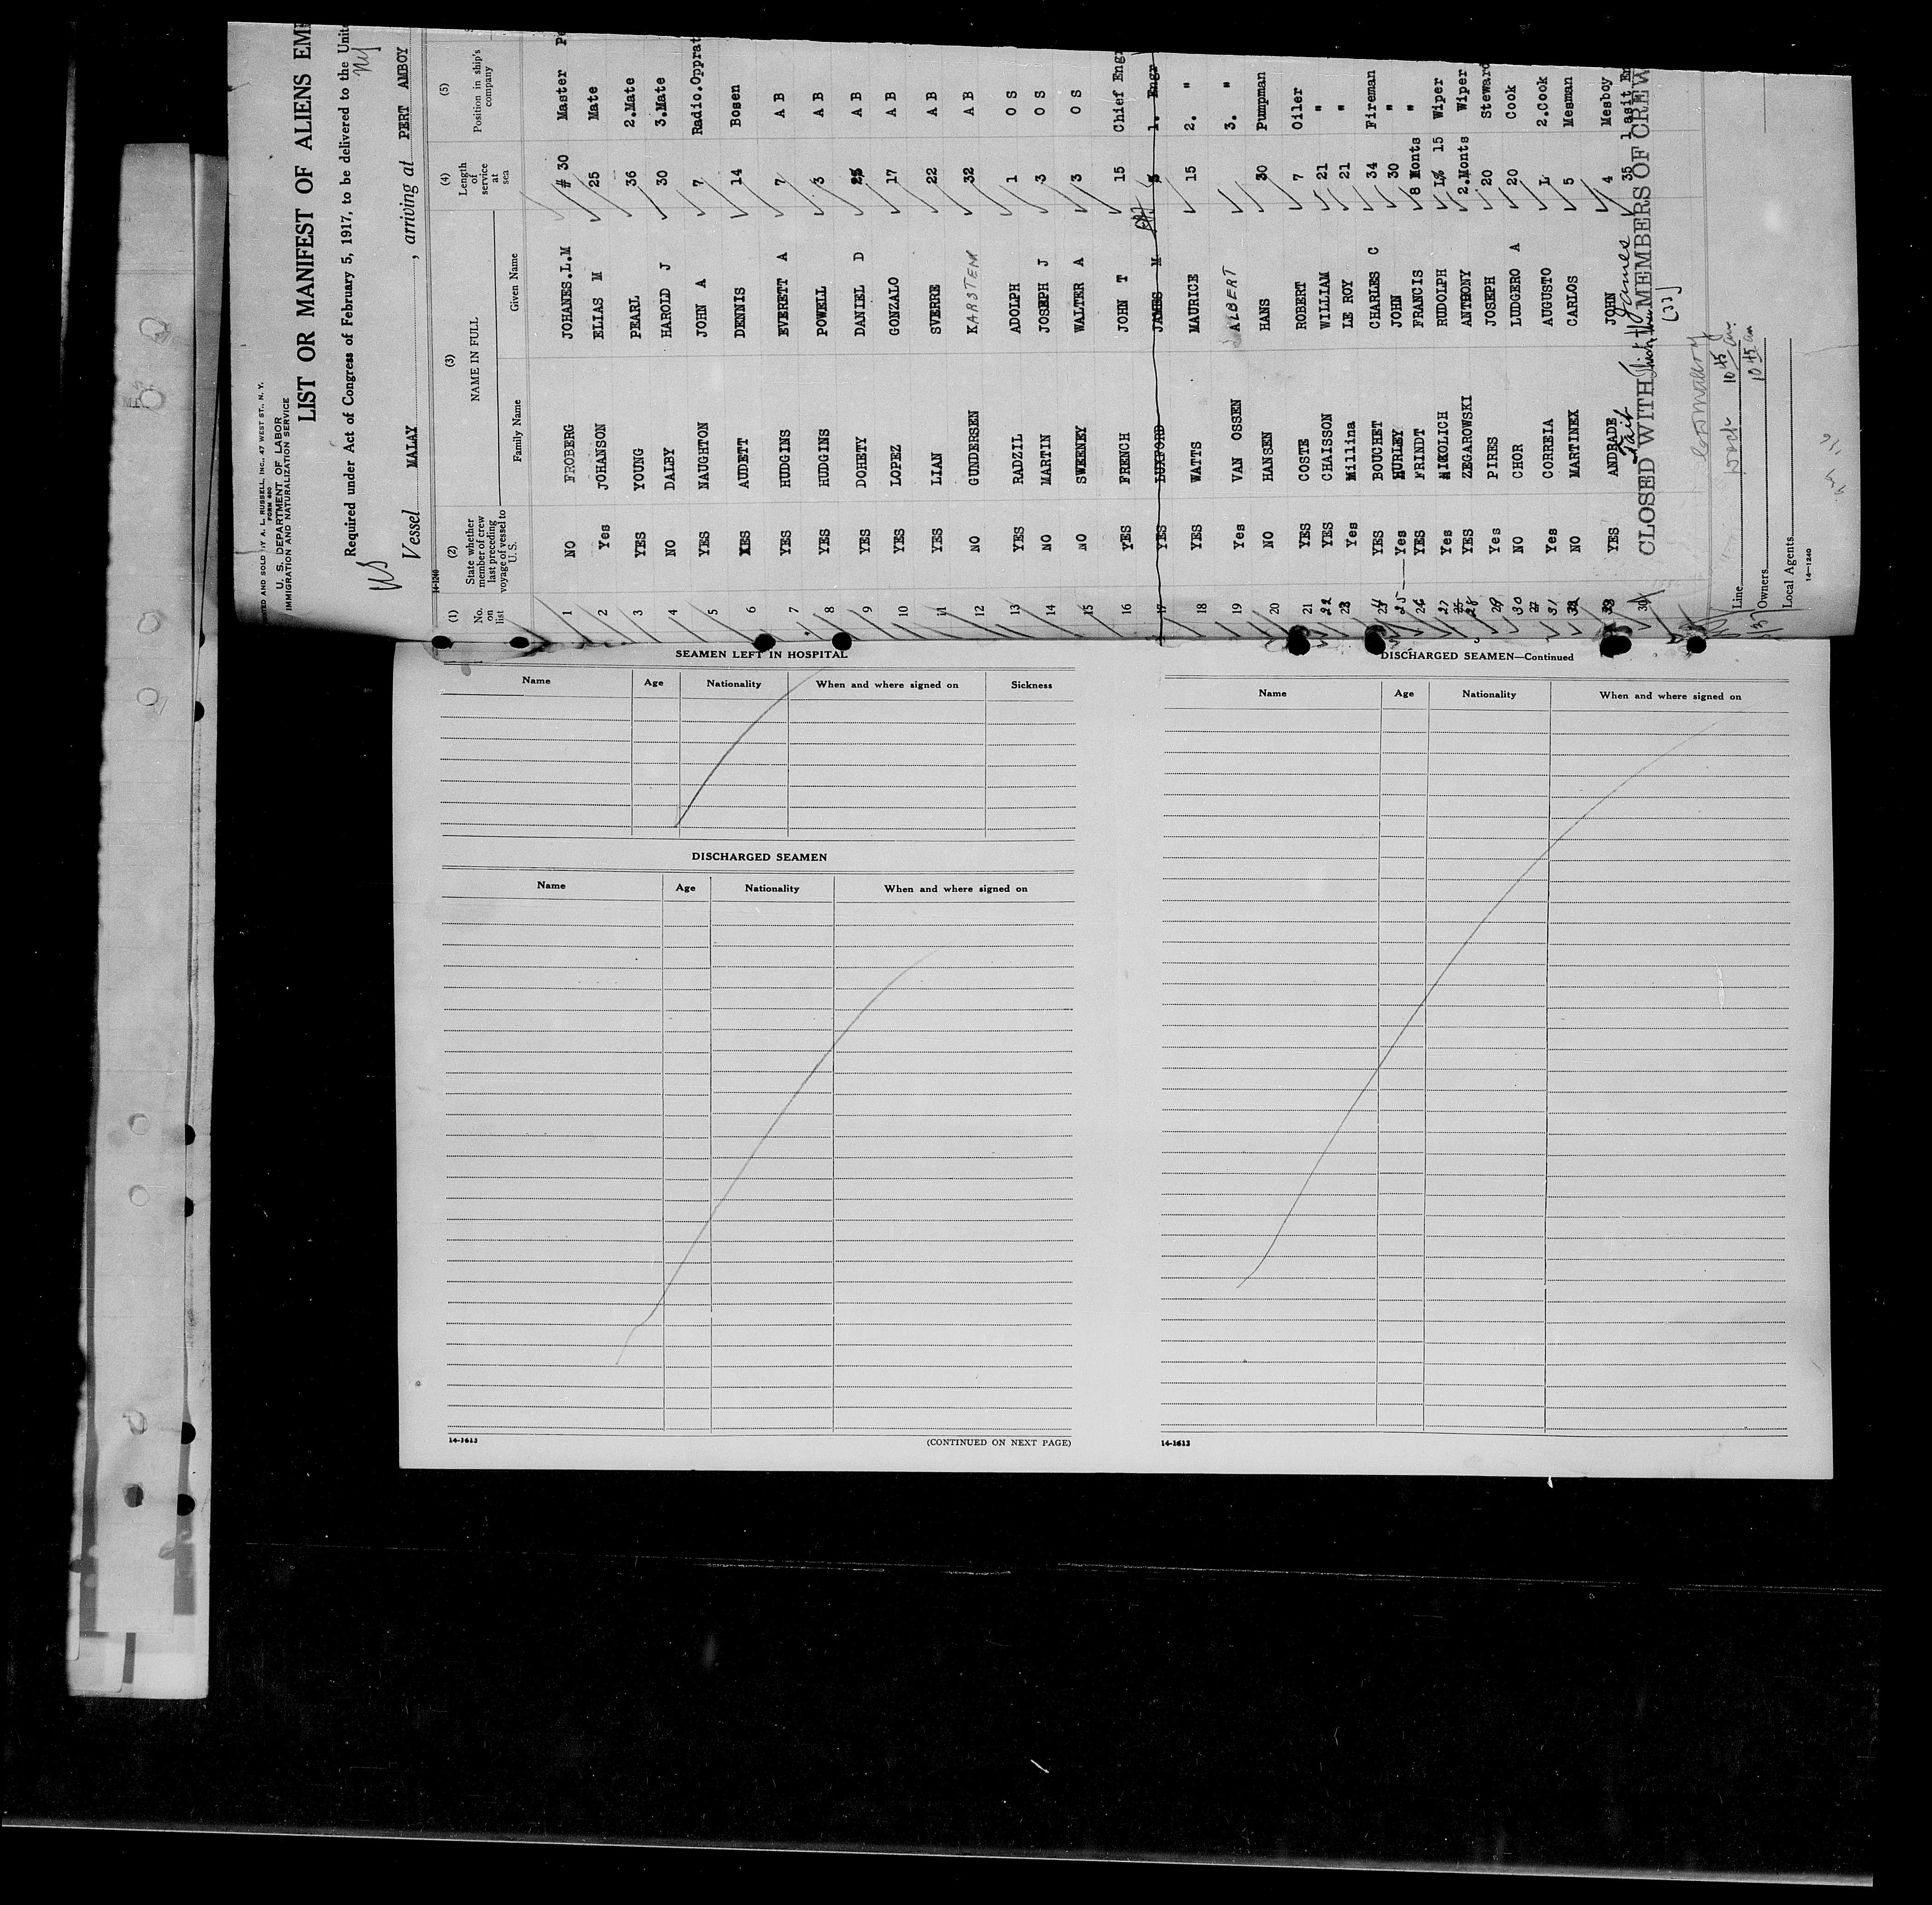 PRINTED AND SOLD BY A. L. RUSSELL, INC., 47 WEST ST., N. Y.
FORM 680
U. S. DEPARTMENT OF LABOR
IMMIGRATION AND NATURALIZATION SERVICE
LIST OR MANIFEST OF ALIENS EM
Required under Act of Congress of February 5, 1917, to be delivered to the Unit
US
NY
Vessel MALAY , arriving at PERT AMBOY
14-1240
(1) (2) (3) (4) (5)
No. on list State whether member of crew last preceding voyage of vessel to U. S. NAME IN FULL Length of service at sea Position in ship's company
Family Name Given Name
1 NO FROBERG JOHANES.L.M # 30 Master
2 Yes JOHANSON ELIAS M 25 Mate
3 YES YOUNG PEARL 36 2.Mate
4 NO DALBY HAROLD J 30 3.Mate
5 YES NAUGHTON JOHN A 7 Radio.Opprat
6 YES AUDETT DENNIS 14 Bosen
7 YES HUDGINS EVERETT A 7 A B
8 YES HUDGINS POWELL 3 A B
9 YES DOHETY DANIEL D A B
10 YES LOPEZ GONZALO 17 A B
11 YES LIAN SVERRE 22 A B
12 NO GUNDERSEN KARSTENN 32 A B
13 YES RADZIL ADOLPH 1 O S
14 NO MARTIN JOSEPH J 3 O S
15 NO SWEENEY WALTER A 3 O S
16 YES FRENCH JOHN T 15 Chief Engr
17 YES LUXFORD JAMES M 1. Engr
18 YES WATTS MAURICE 15 2. "
19 Yes VAN OSSEN ALBERT 3. "
20 NO HANSEN HANS 30 Pumpman
21 YES COSTE ROBERT 7 Oiler
22 YES CHAISSON WILLIAM 21 "
23 Yes Millina LE ROY 21 "
24 YES BOUCHET CHARLES C 34 Fireman
25 Yes HURLEY JOHN 30 "
26 YES FRINDT FRANCIS 8 Monts "
27 Yes NIKOLICH RUDOLPH 15 Wiper
28 YES ZEGAROWSKI ANTHONY 2.Monts Wiper
29 Yes PIRES JOSEPH 20 Steward
30 NO CHOR LUDGERO A 20 Cook
31 Yes CORREIA AUGUSTO 1 2.Cook
32 NO MARTINEX CARLOS 5 Mesman
33 YES ANDRADE JOHN 4 Mesboy
Tait James 35 1 asit En
CLOSED WITH MEMBERS OF CREW
[33]
Line 10 45 am
Owners 10 45 am
Local Agents
14-1240
SEAMEN LEFT IN HOSPITAL
Name Age Nationality When and where signed on Sickness
DISCHARGED SEAMEN
Name Age Nationality When and where signed on
14-1613
(CONTINUED ON NEXT PAGE)
DISCHARGED SEAMEN—Continued
Name Age Nationality When and where signed on
14-1613